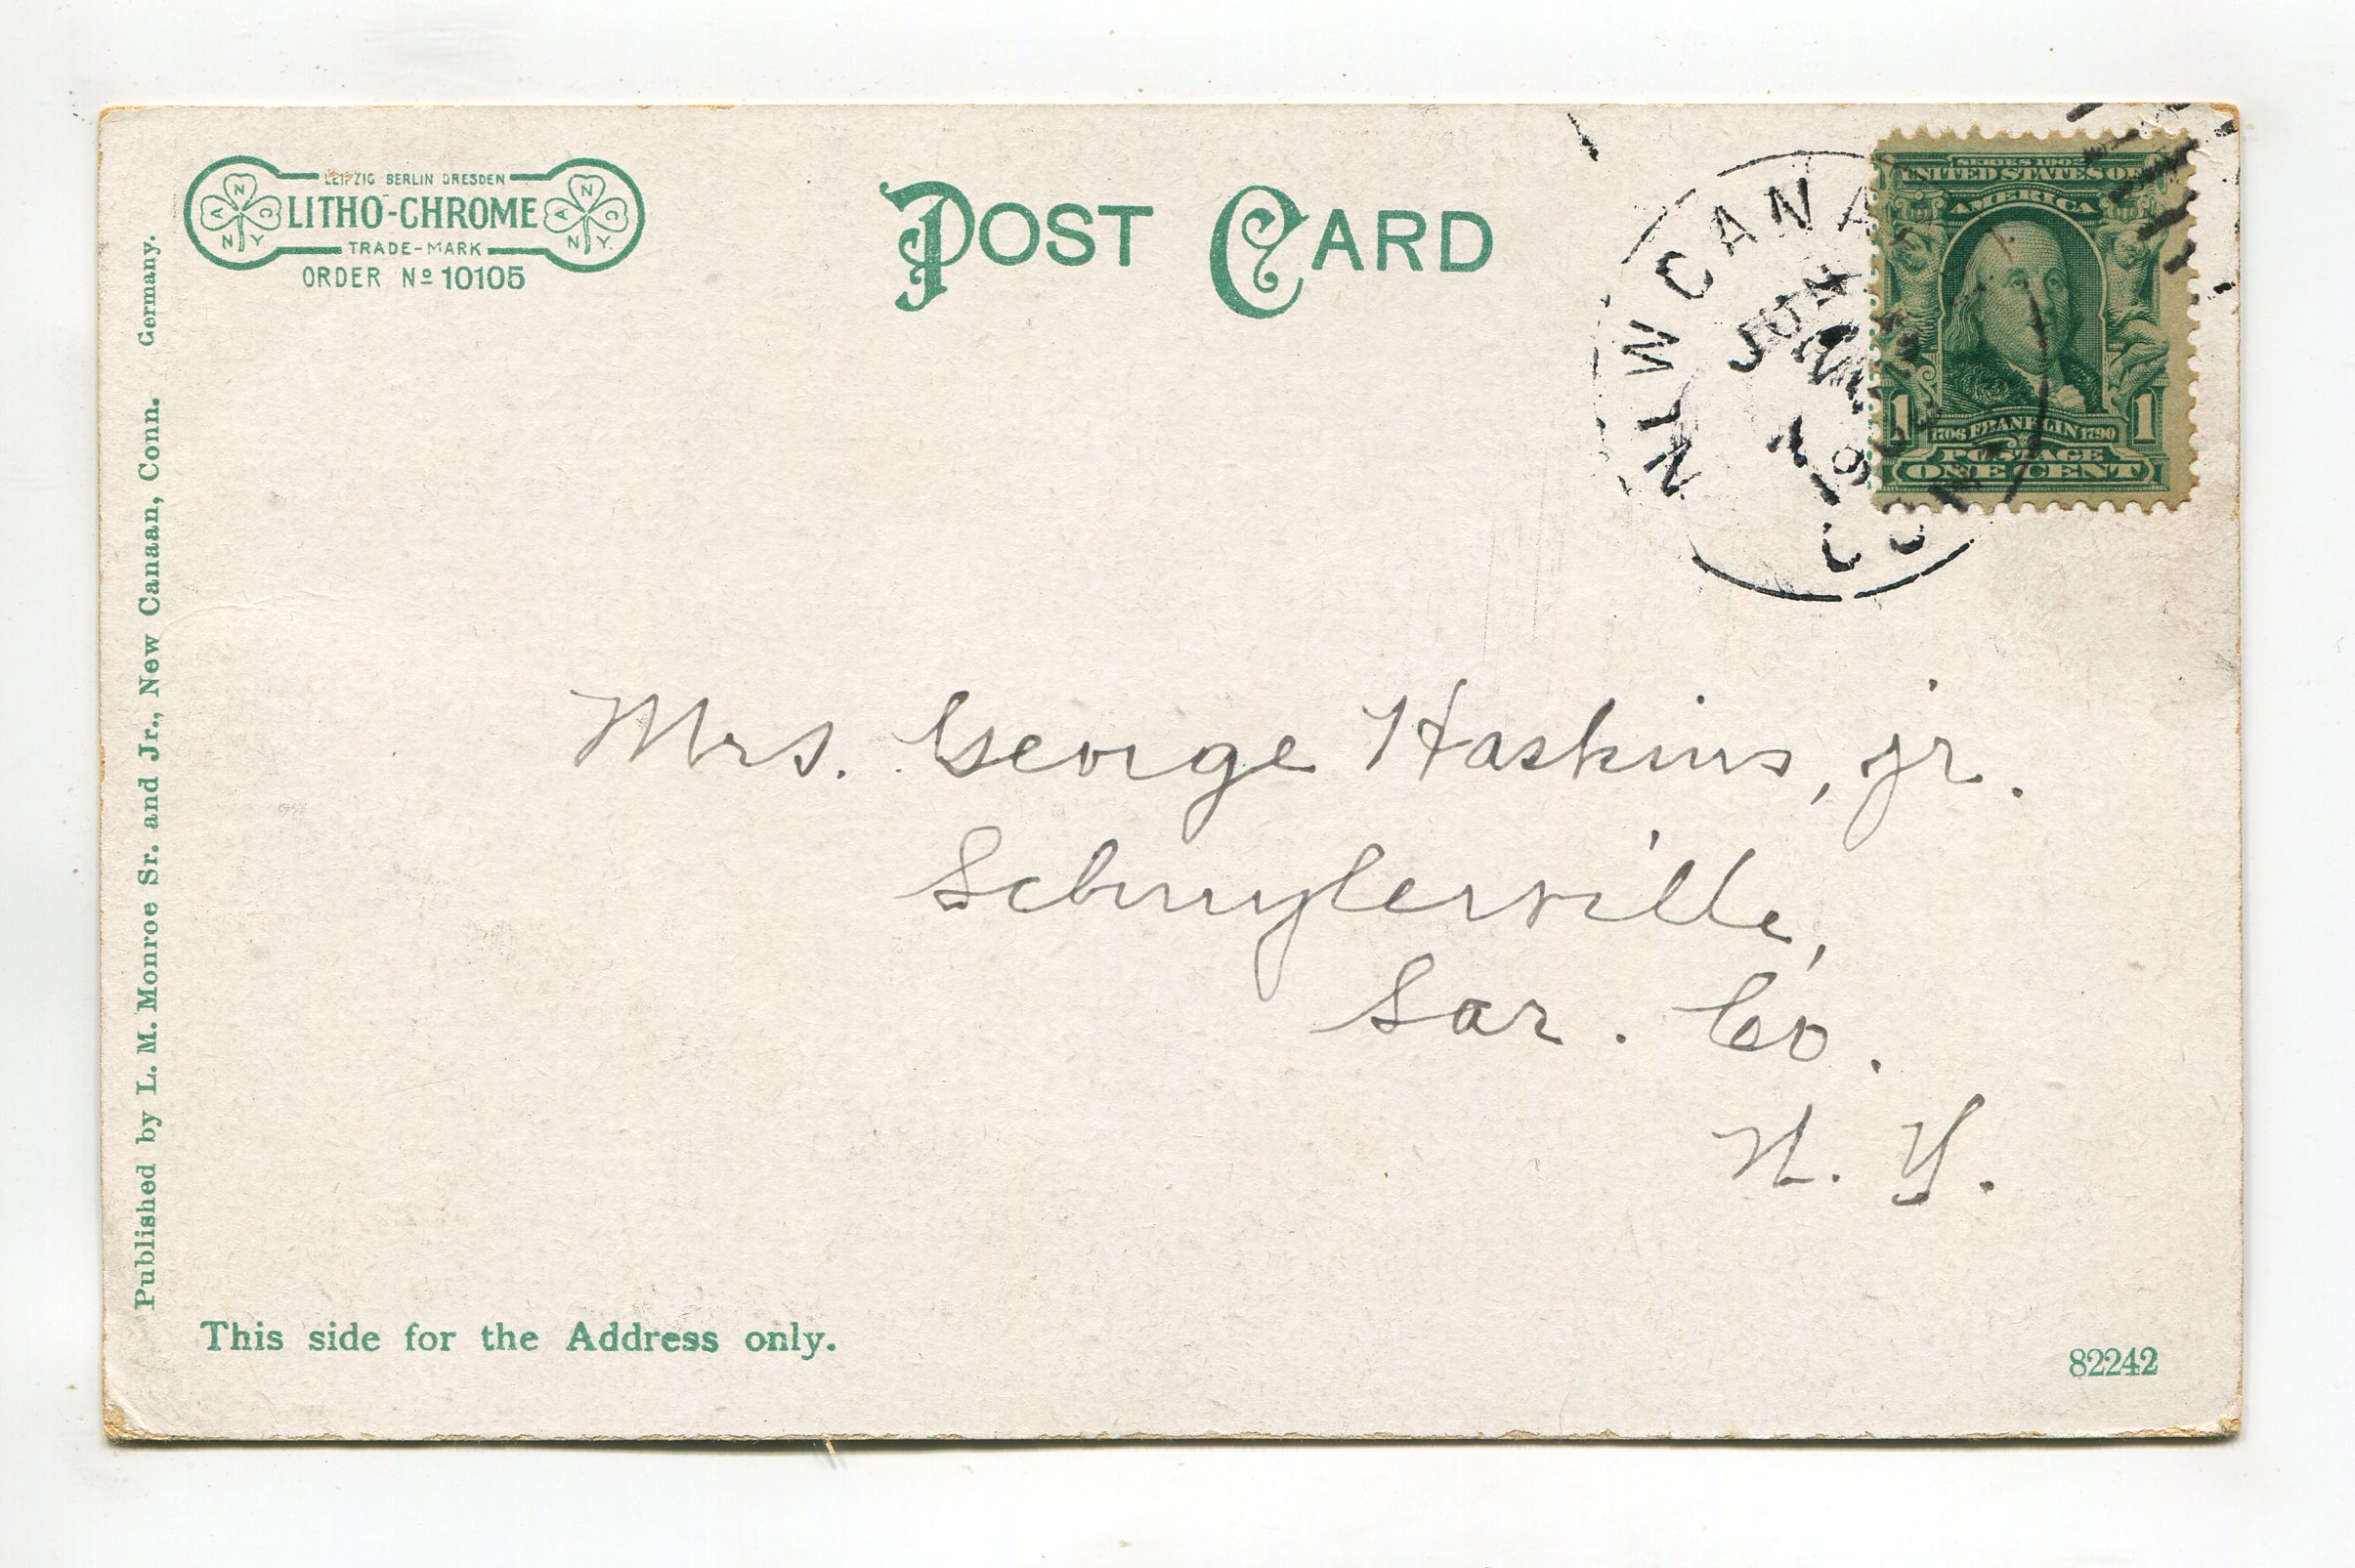 LEIPZIG BERLIN DRESDEN
LITHO-CHROME
TRADE-MARK
ORDER Nº 10105
POST CARD
NEW CANAAN
JUN
CONN
SERIES 1902
UNITED STATES OF
AMERICA
1 1
1706 FRANKLIN 1790
POSTAGE
ONE CENT
Mrs. George Haskins, jr.
Schuylerville,
Sar. Co.
N. Y.
Published by L. M. Monroe Sr. and Jr., New Canaan, Conn. Germany.
This side for the Address only.
82242